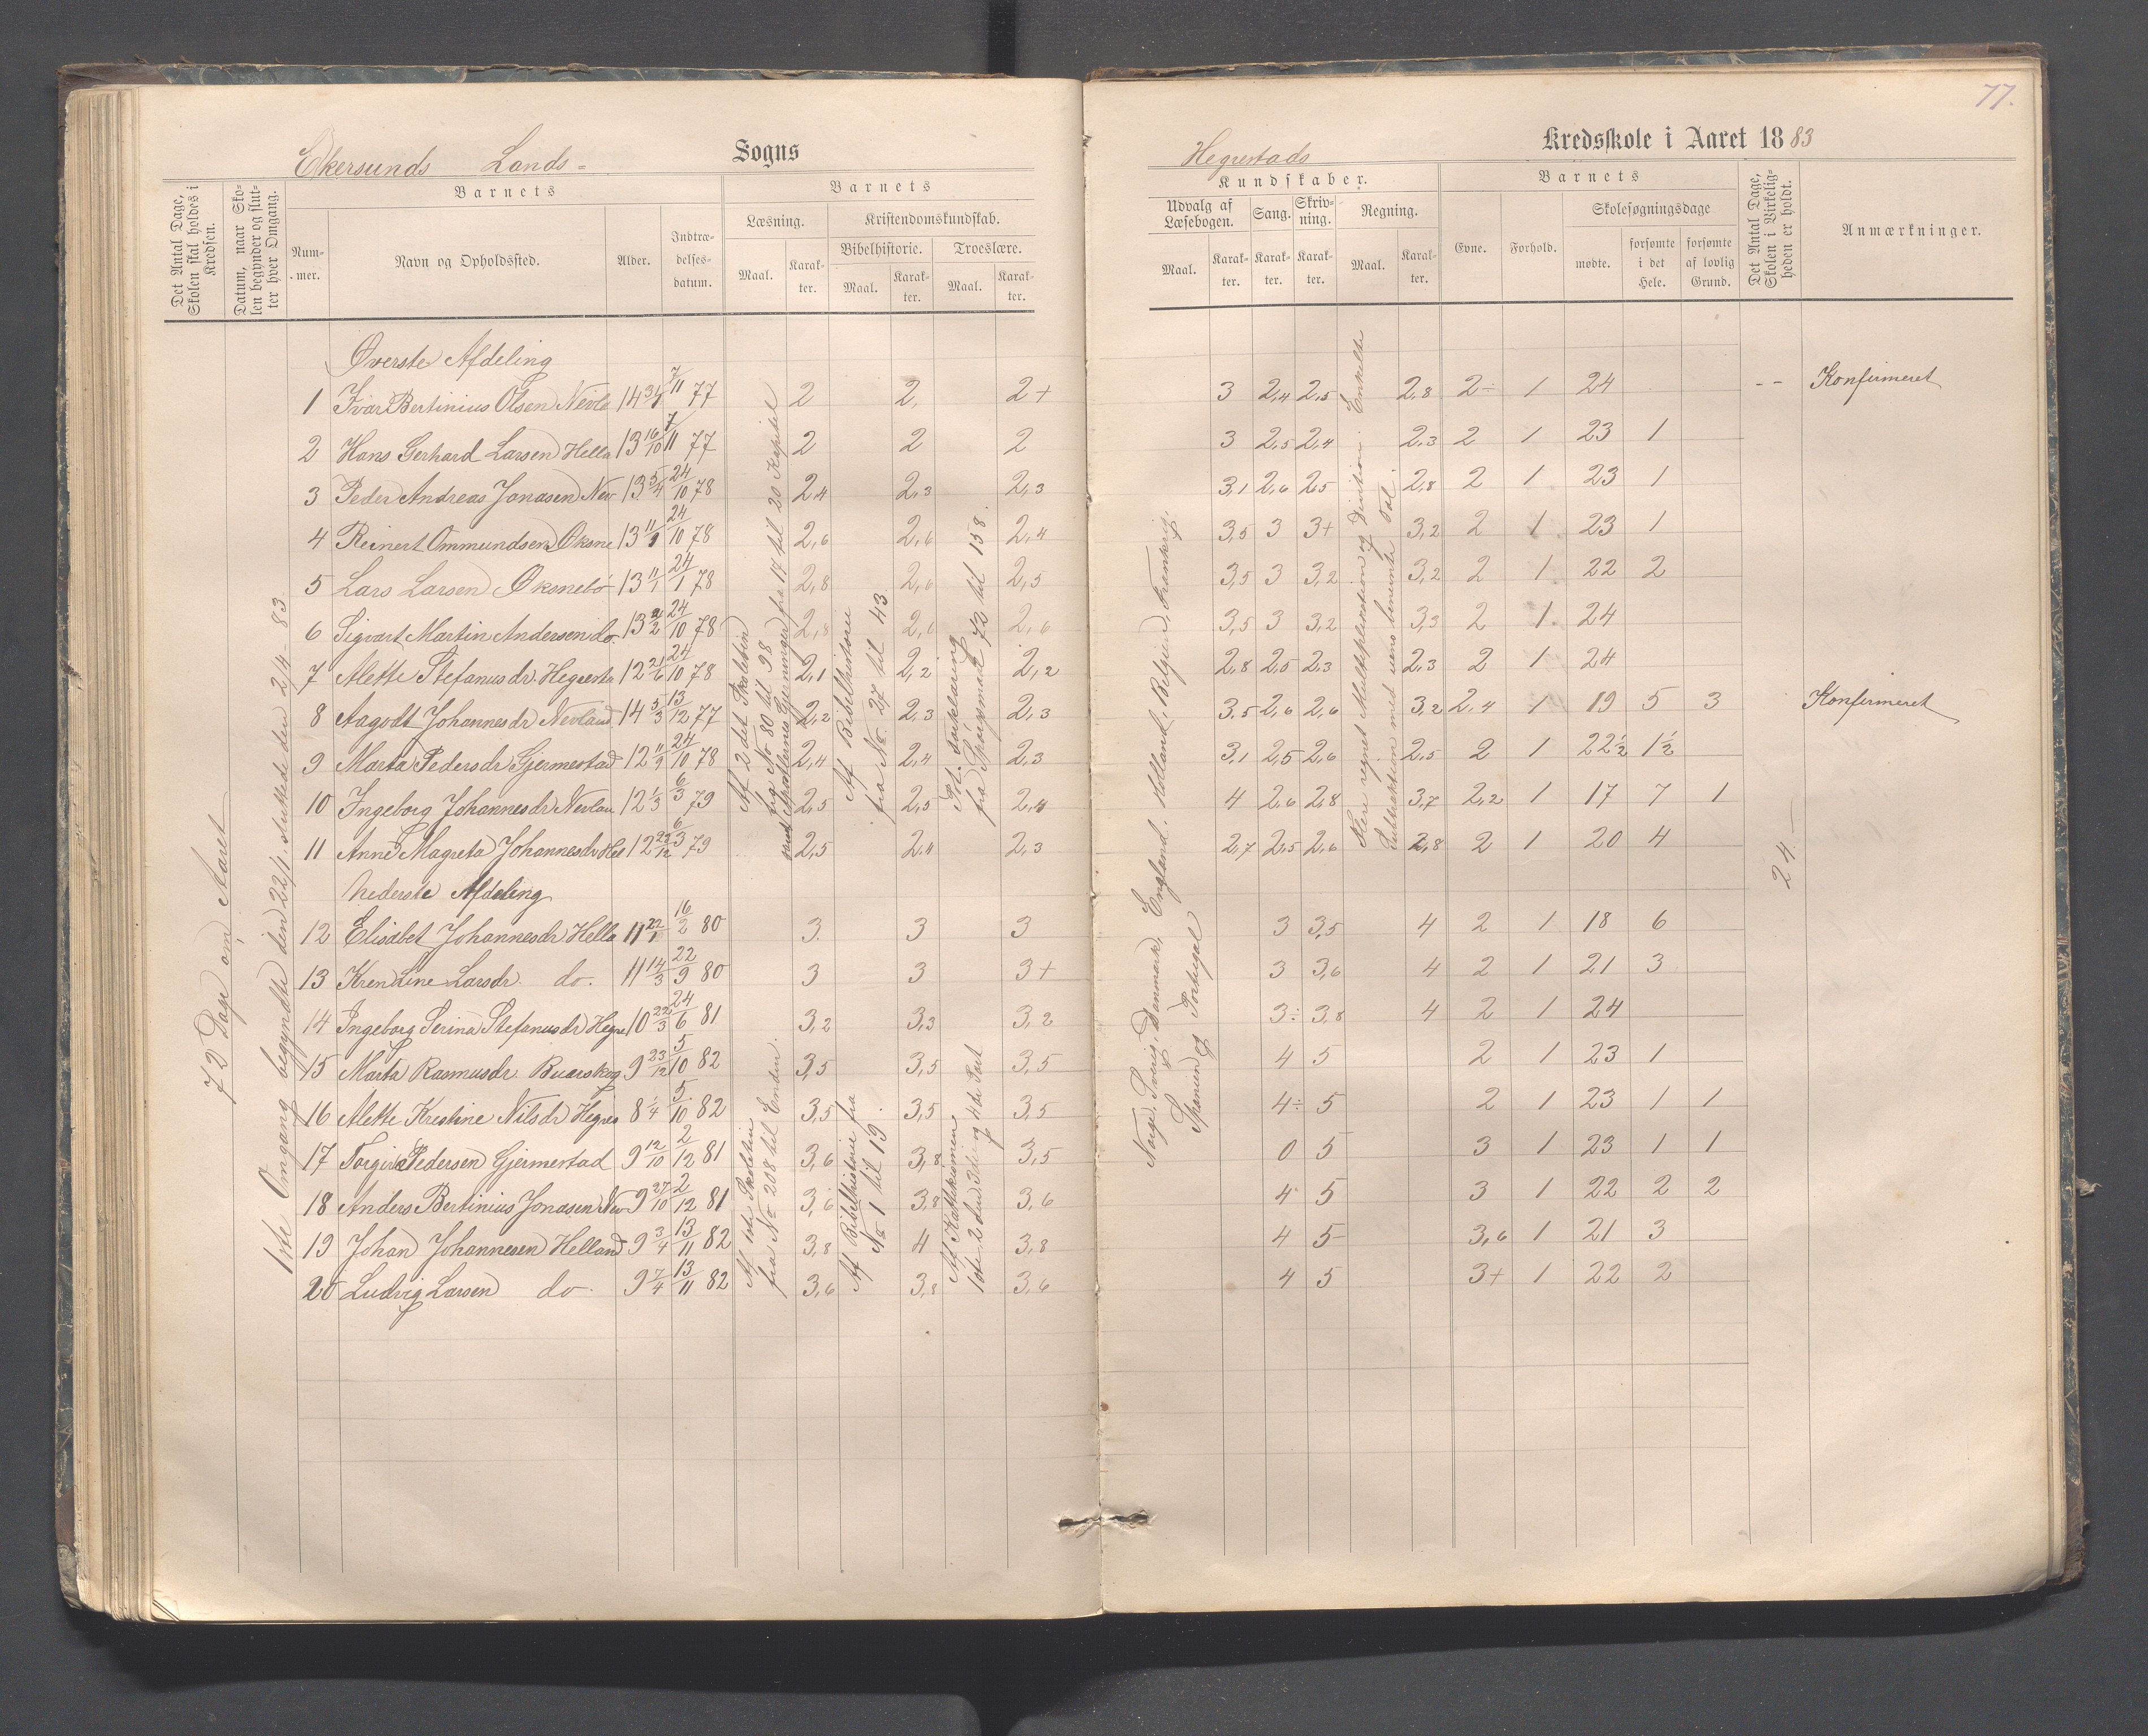 77.
Ekersunds Lands- Sogns
Hegrestads Kredsskole i Aaret 1883
Det Antal Dage, Skolen skal holdes i Kredsen.
Datum, naar Skolen begynder og slutter hver Omgang.
Barnets
Nummer.
Navn og Opholdssted.
Alder.
Indtrædelsesdatum.
Barnets
Læsning.
Kristendomskundskab.
Bibelhistorie.
Troeslære.
Maal. Karakter. Maal. Karakter. Maal. Karakter.
Kundskaber.
Udvalg af Læsebogen.
Sang.
Skrivning.
Regning.
Maal. Karakter. Karakter. Karakter. Maal. Karakter.
Barnets
Evne.
Forhold.
Skolesøgningsdage
mødte.
forsømte i det Hele.
forsømte af lovlig Grund.
Det Antal Dage, Skolen i Virkeligheden er holdt.
Anmærkninger.
72 Dage om Aaret
1ste Omgang begyndte den 22/1 sluttede den 2/4 - 83.
Øverste Afdeling
1 Ivar Bertinius Olsen Nevla 14 7/11 77 2 2, 2+ 3 2,4 2,5 2,8 2÷ 1 24 -- Konfirmeret
2 Hans Gerhard Larsen Hella 13 16/10 7/11 77 2 2 2 3 2,5 2,4 2,3 2 1 23 1
3 Peder Andreas Jonasen Nev 13 5/4 24/10 78 2,4 2,3 2,3 3,1 2,6 2,5 2,8 2 1 23 1
4 Reinert Ommundsen Øksne 13 11/9 24/10 78 2,6 2,6 2,4 3,5 3 3+ 3,2 2 1 23 1
5 Lars Larsen Øksnebø 13 11/1 24/1 78 2,8 2,6 2,5 3,5 3 3,2 3,2 2 1 22 2
6 Sigvart Martin Andersen do. 13 24/10 78 2,8 2,6 2,6 3,5 3 3,2 3,3 2 1 24
7 Alette Stefanusdr Hegresta 12 21/6 24/10 78 2,1 2,2 2,2 2,8 2,5 2,3 2,3 2 1 24
8 Aagodt Johannesdr Nevland 14 5/3 13/12 77 2,2 2,3 2,3 3,5 2,6 2,6 3,2 2,4 1 19 5 3 Konfirmeret
9 Marta Pedersdr Gjermestad 12 11/9 24/10 78 2,4 2,4 2,3 3,1 2,5 2,6 2,5 2 1 22½ 1½
10 Ingeborg Johannesdr Nevlan 12 1/3 6/3 79 2,5 2,5 2,4 4 2,6 2,8 3,7 2,2 1 17 7 1
11 Anne Magreta Johannesdr Hel 12 22/12 6/3 79 2,5 2,4 2,3 2,7 2,5 2,6 2,8 2 1 20 4
Nederste Afdeling
12 Elisabet Johannesdr Hella 11 22/1 16/2 80 3. 3 3 3 3,5 4 2 1 18 6
13 Kren Line Larsdr. do. 11 14/3 22/9 80 3 3 3+ 3 3,6 4 2 1 21 3
14 Ingeborg Serina Stefanusdr Hegre 10 22/3 24/6 81 3,2 3,3 3,2 3÷ 3,8 4 2 1 24
15 Marta Rasmusdr. Buarskog 9 23/12 5/10 82 3,5 3,5 3,5 4 5 2 1 23 1
16 Alette Kristine Nilsdr Hegres 8 1/4 5/10 82 3,5 3,5 3,5 4÷ 5 2 1 23 1 1
17 Torgier Pedersen Gjermestad 9 12/10 2/12 81 3,6 3,8 3,5 0 5 3 1 23 1 1
18 Anders Bertinius Jonasen Nev 9 27/10 2/12 81 3,6 3,8 3,6 4 5 3 1 22 2 2
19 Johan Johannesen Helland 9 3/4 13/11 82 3,8 4 3,8 4 5 3,6 1 21 3
20 Ludvig Larsen do. 9 7/4 13/11 82 3,6 3,8 3,6 4 5 3+ 1 22 2
Af 2det Skoletrin fra No 80 til 98 samt Apostlernes Gjerninger fra 17 til 20 Kapitel
Af Bibelhistorie fra No. 27 til 43
Pot. Forklaring fra Spørgsmaal 72 til 158.
Af 1ste Skoletrin fra No 208 til Enden.
Af Bibelhistorie fra No 1 til 19.
Af Katekismen 1ste 2den 3die og 4de Part
Norge, Sverig, Danmark, England, Holland, Belgien, Frankrig, Spanien og Portugal
Flere regnet Multiplikation og Division. Enkelte Subtraktion med uens benævnte Tal.
24.-